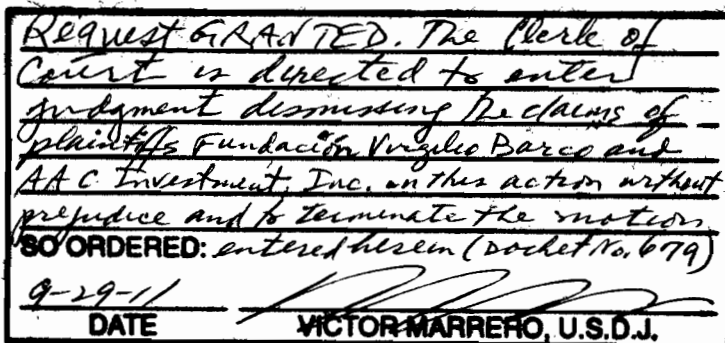 Request GRANTED. The Clerk of
Court is directed to enter
judgment dismissing the claims of
plaintiffs Fundación Virgilio Barco and
AAC Investment, Inc. in this action without
prejudice and to terminate the motion
SO ORDERED: entered herein (Docket No. 679)
9-29-11
DATE VICTOR MARRERO, U.S.D.J.